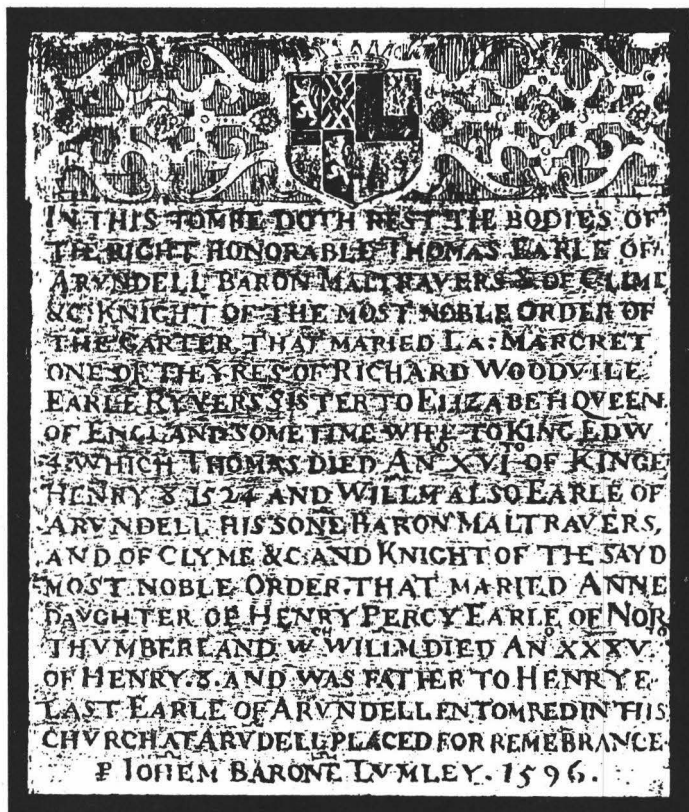 IN THIS TOMBE DOTH REST THE BODIES OF
THE RIGHT HONORABLE THOMAS EARLE OF
ARVNDELL BARON MALTRAVERS & OF CLIME
&C: KNIGHT OF THE MOST NOBLE ORDER OF
THE GARTER THAT MARIED LA: MARGRET
ONE OF THEYRES OF RICHARD WOODVILE
EARLE RYVERS SISTER TO ELIZABEH QVEEN
OF ENGLAND SOMETIME WIFE TO KING EDW
4: WHICH THOMAS DIED ANº XVIᵀᴼ OF KINGE
HENRY 8 1524 AND WILLM ALSO EARLE OF
ARVNDELL HIS SONE BARON MALTRAVERS,
AND OF CLYME &C: AND KNIGHT OF THE SAYD
MOST NOBLE ORDER. THAT MARIED ANNE
DAVGHTER OF HENRY PERCY EARLE OF NOR
THVMBERLAND. Wᶜᴴ WILLM DIED ANº XXXVᵀᴼ
OF HENRY. 8. AND WAS FATHER TO HENRYE
LAST EARLE OF ARVNDELL ENTOMBED IN THIS
CHVRCH AT ARVDELL PLACED FOR REMEBRANCE
ꝑ IOHEM BARONE LVMLEY. 1596.